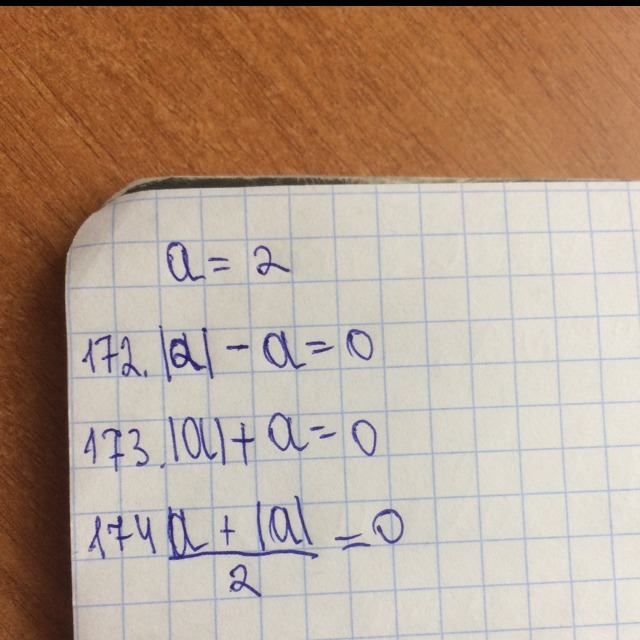 a = 2
172. |a| - a = 0
173. |a| + a = 0
174 a + |a| / 2 = 0